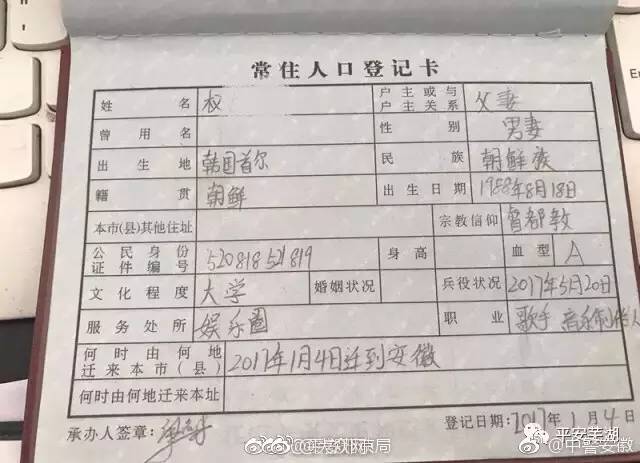 常住人口登记卡
姓 名 权 户主或与户主关系 父妻
曾用名 性 别 男妻
出生地 韩国首尔 民 族 朝鲜族
籍 贯 朝鲜 出生日期 1988年8月18日
本市(县)其他住址 宗教信仰
公民身份证件编号 520818521819 身高 血型 A
文化程度 大学 婚姻状况 兵役状况 2017年5月20日
服务处所 娱乐圈 职 业 歌手 音乐制作人
何时由何地迁来本市(县) 2017年1月4日迁到安徽
何时由何地迁来本址
承办人签章: 登记日期:2017年1月4日
平安芜湖
@中警安徽